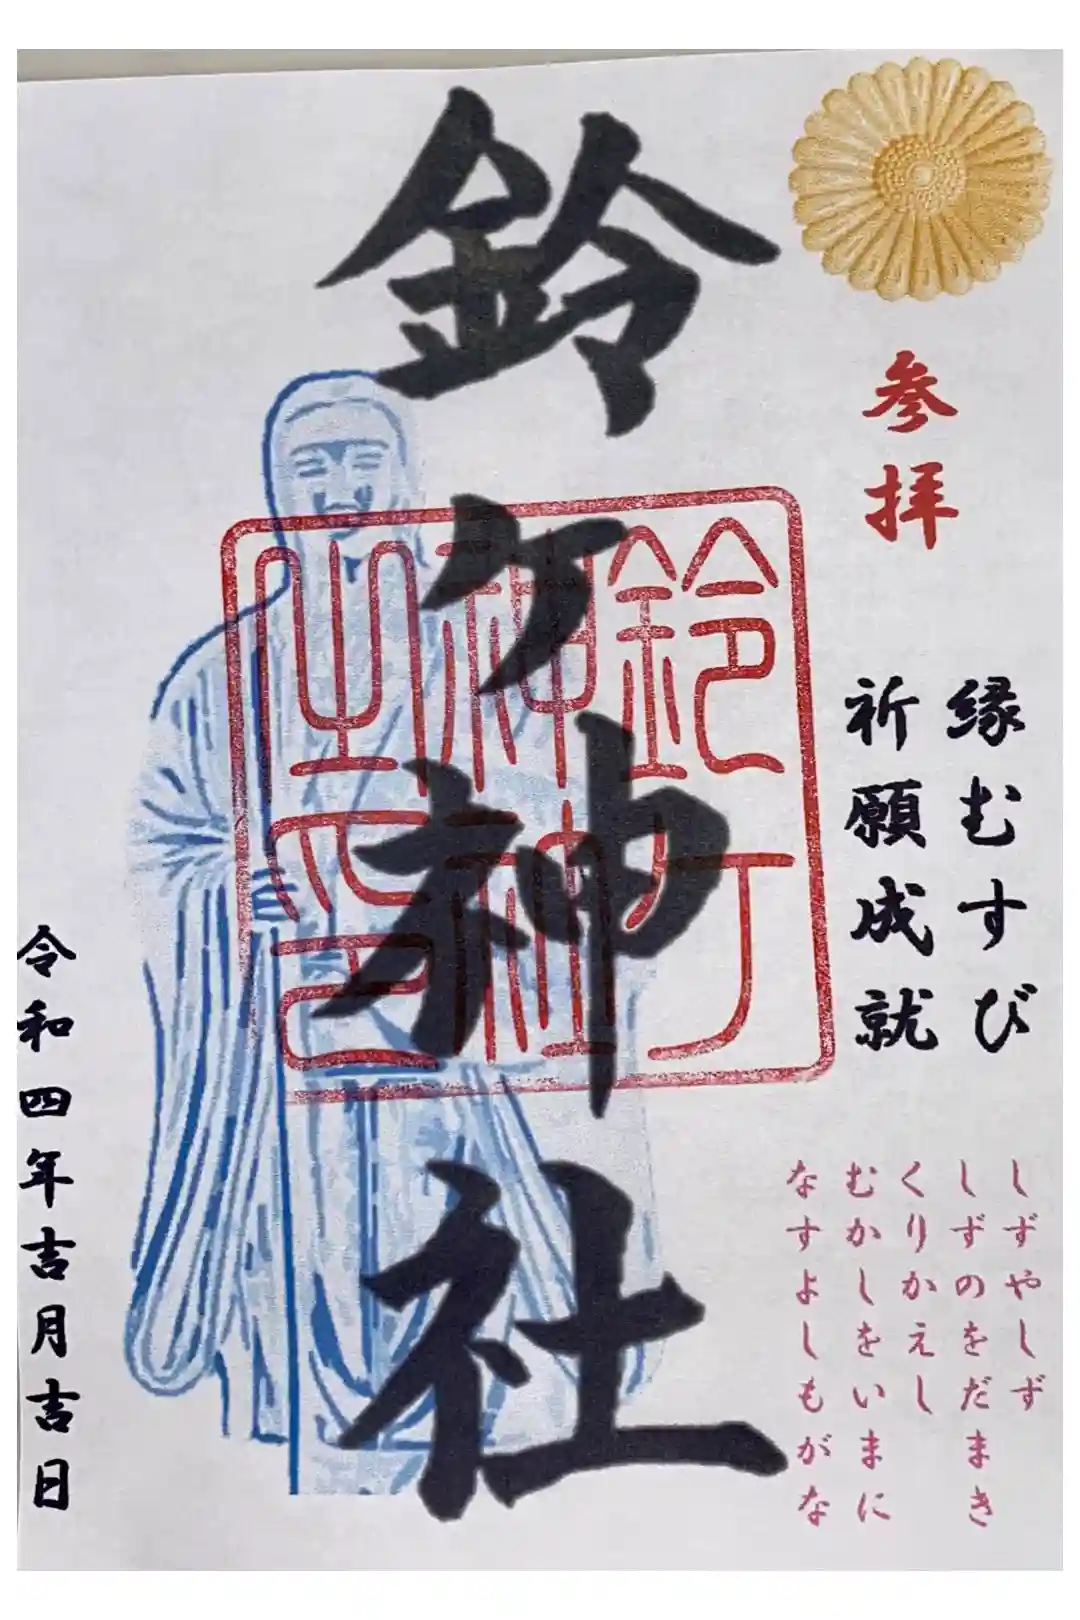 参拝
縁むすび
祈願成就
しずやしず
しずのをだまき
くりかえし
むかしをいまに
なすよしもがな
鈴ケ神社
令和四年吉月吉日